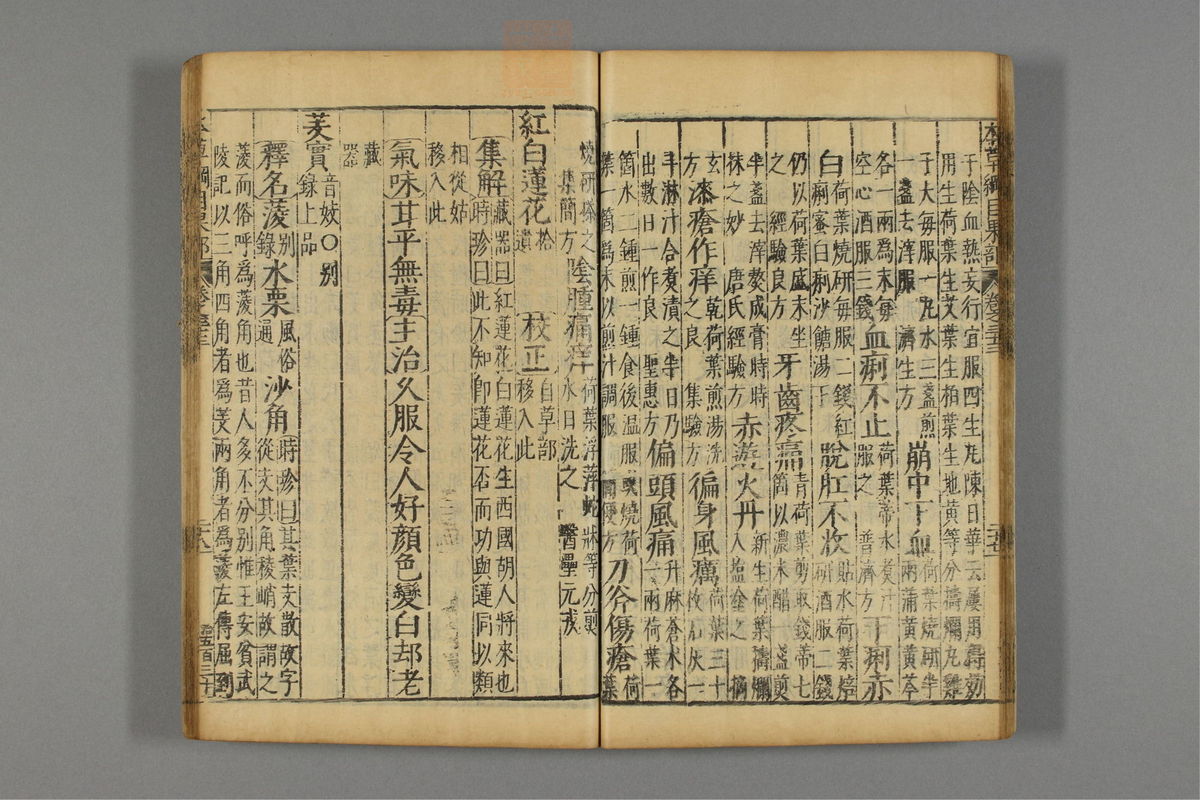 本草綱目果部 卷三十三
于陰血熱妄行宜服四生丸陳日華云屢用得効
用生荷葉生艾葉生柏葉生地黃等分擣爛丸雞
子大每服一丸水三盞煎一盞去滓服 濟生方 崩中下血 荷葉燒研半兩蒲黃黃芩
各一兩為末每空心酒服三錢 血痢不止 荷葉蒂水煮汁服之 普濟方 下痢赤
白 荷葉燒研每服二錢紅痢蜜白痢沙餹湯下 脫肛不收 貼水荷葉焙研酒服二錢
仍以荷葉盛末坐之 經驗良方 牙齒疼痛 青荷葉剪取錢蒂七箇以濃米醋一盞煎
半盞去滓熬成膏時時抹之妙 唐氏經驗方 赤遊火丹 新生荷葉擣爛入鹽塗之 摘
玄方 漆瘡作痒 乾荷葉煎湯洗之良 集驗方 徧身風癘 荷葉三十枚石灰一
斗淋汁合煮漬之半日乃出數日一作良 聖惠方 偏頭風痛 升麻蒼朮各一兩荷葉一
箇水二鍾煎一鍾食後温服或燒荷葉一箇為末以煎汁調服 簡便方 刀斧傷瘡 荷葉
燒研搽之 集簡方 陰腫痛痒 荷葉浮萍蛇牀等分煎水日洗之 醫壘元戎
紅白蓮花 拾遺 校正 自草部移入此
集解 藏器曰紅蓮花白蓮花生西國胡人將來也時珍曰此不知即蓮花否而功與蓮同以類
相從姑移入此
氣味 甘平無毒 主治 久服令人好顏色變白却老
藏器
芰實 音妓〇別錄上品
釋名 蔆 別錄 水栗 風俗通 沙角 時珍曰其葉支散故字從支其角棱峭故謂之
蔆而俗呼為菱角也昔人多不分別惟王安貧武
陵記以三角四角者為芰兩角者為蔆左傳屈到